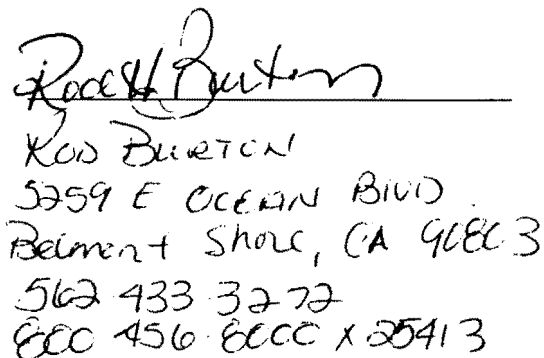 Rod H. Burton
ROD BURTON
5259 E OCEAN BLVD.
Belmont Shore, CA 90803
562 433 3272
800 456 8000 x 25413